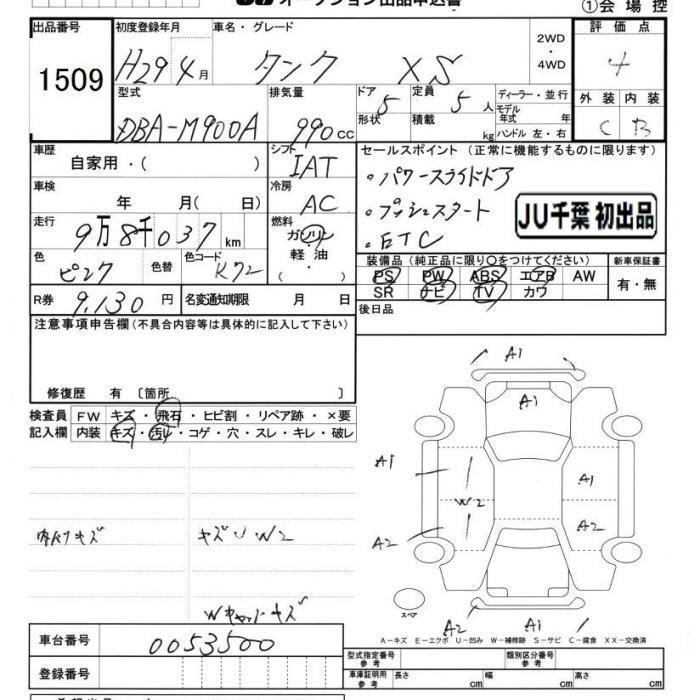 オークション出品申込書
①会場控
出品番号 初度登録年月 車名・グレード 評価点
1509 H29年4月 タンク XS 2WD・4WD 4
型式 排気量 ドア 形状 定員 積載 ディーラー・並行 モデル年式 年 ハンドル 左・右 外装 内装
DBA-M900A 990cc 5 5人 kg C B
車歴 自家用・( ) シフト IAT
セールスポイント(正常に機能するものに限ります)
車検 年 月( 日) 冷房 AC
・パワースライドドア
・プッシュスタート
・ETC
JU千葉 初出品
走行 9万8千037km 燃料 ガソリン・軽油・( )
色 ピンク 色替 色コード K72
装備品(純正品に限り○をつけてください) 新車保証書
PS PW ABS エアB AW
SR ナビ TV カワ
有・無
R券 9,130円 名変通知期限 月 日
後日品
注意事項申告欄(不具合内容等は具体的に記入して下さい)
修復歴 有 〔箇所 〕
検査員記入欄 FW キズ・飛石・ヒビ割・リペア跡・×要
内装 キズ・汚れ・コゲ・穴・スレ・キレ・破レ
A1
A1
A1
A1
W2
A2
A2
内ハリキズ キズU W2
スペア
A2 A1
A-キズ E-エクボ U-凹み W-補修跡 S-サビ C-腐食 XX-交換済
車台番号 0053500
登録番号
型式指定番号 参考 類別区分番号 参考
車庫証明用 参考 長さ cm 幅 cm 高さ cm